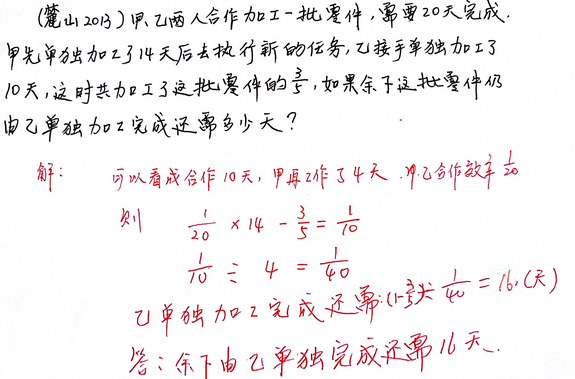 (麓山2013)甲、乙两人合作加工一批零件,需要20天完成.
甲先单独加工了14天后去执行新的任务,乙接手单独加工了
10天,这时共加工了这批零件的3/5,如果余下这批零件仍
由乙单独加工完成还需多少天?
解: 可以看成合作10天,甲再工作了4天.甲.乙合作效率 1/20
则 1/20 × 14 - 3/5 = 1/10
1/10 ÷ 4 = 1/40
乙单独加工完成还需:(1-3/5)÷ 1/40 = 16.(天)
答:余下由乙单独完成还需16天.